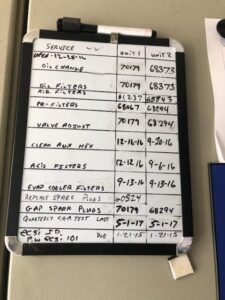 SERVICE UNIT 1 UNIT 2
OIL CHANGE 70179 68373
OIL FILTERS 70179 68373
AIR FILTERS 61237 68843
PR-FILTERS 68067 68994
VALVE ADJUST 70179 68294
CLEAN AUX HEX 12-16-16 9-20-16
ACID FILTERS 12-12-16 9-6-16
EVAP COOLER FILTERS 9-13-16 9-13-16
REPLACE SPARK PLUGS 60524
GAP SPARK PLUGS 70179 68294
QUARTERLY EGA TEST LAST 5-1-17 5-1-17
DUE 1-21-15 1-21-15